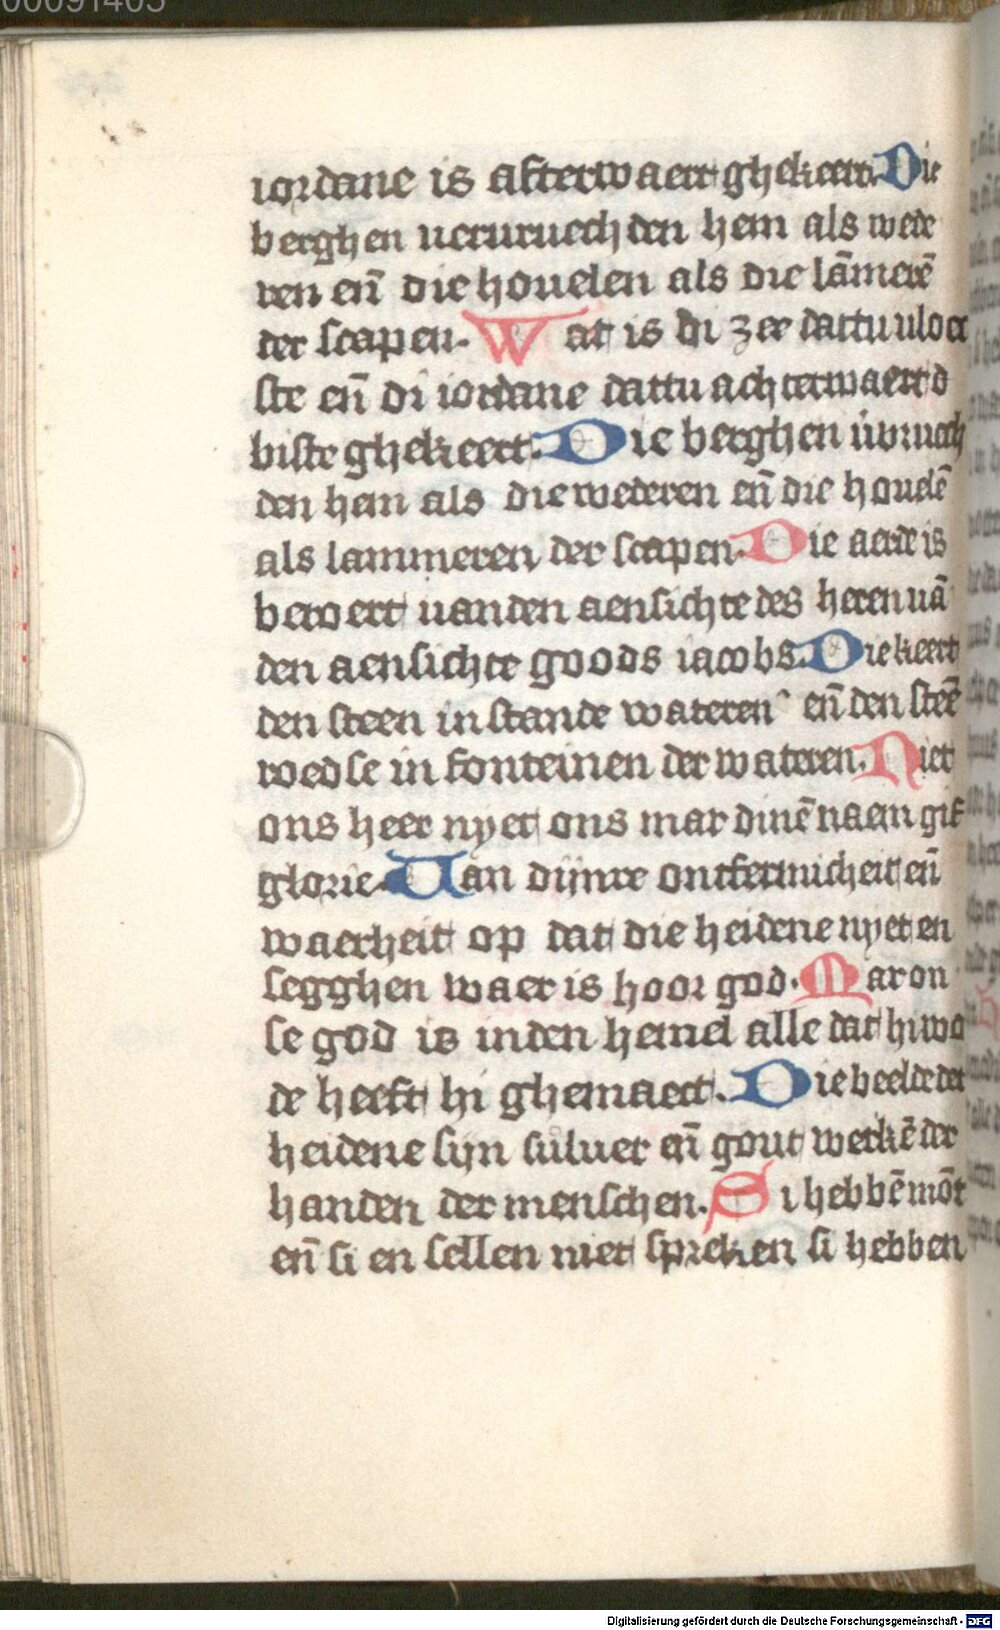 00091405
iordane is afterwaert ghekeert. Die
berghen ueruruechden hem als wede
ren en̄ die houelen als die lām̄erē
der scapen. Wat is di zee dattu uloet
ste en̄ di iordane dattu achterwaert
biste ghekeert. Die berghen
den hem als die wederen en̄ die houelē
als lammeren der scapen. Die aerde is
beroert uanden aensichte des heren uā
den aensichte goods iacobs. Die keert
den steen in stande wateren en̄ den steē
roedse in fonteinen der wateren. Niet
ons heer nyet ons mar dinē naem gif
glorie. Uan dijnre ontfermicheit en̄
waerheit op dat die heidene nyet en
segghen waer is hoor god. Mar on
se god is inden hemel alle dat hi wo
de heeft hi ghemaect. Die beelde der
heidene sijn siluer en̄ gout werkē der
handen der menschen. Si hebbē mōt
en̄ si en sellen niet spreken si hebben
Digitalisierung gefördert durch die Deutsche Forschungsgemeinschaft - DFG